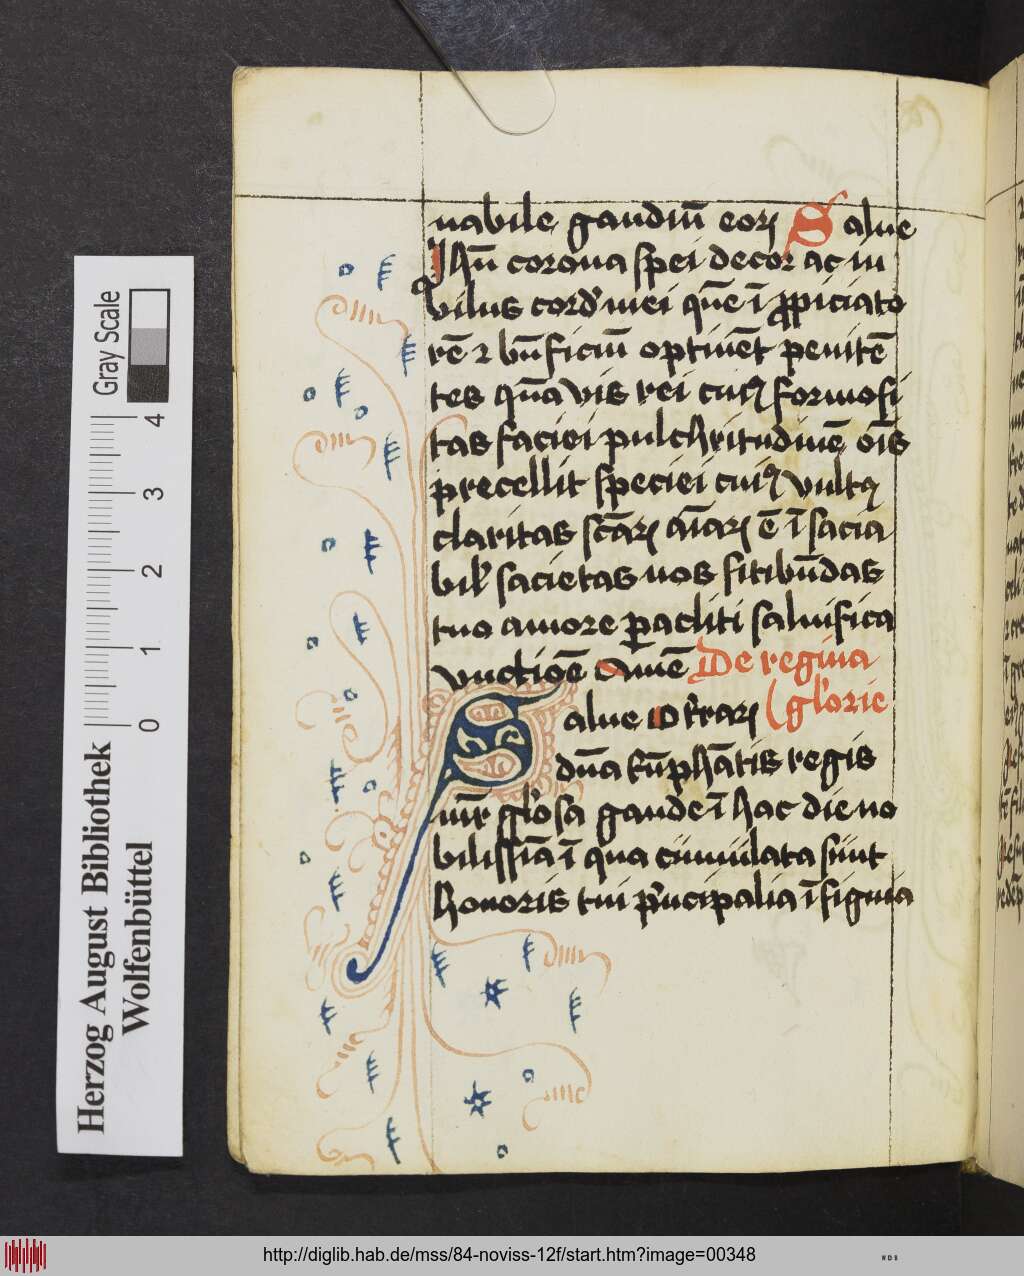 nabile gaudiū eoꝝ Salue
Ihū corona spei decor ac iu
bilus cord' mei q̄ne ī ꝓpiciato
rē ⁊ bn̄ficiū optinēt penitē
tes qn̄a vis rei cuiꝯ formosi
tas faciei pulchritudinē oīs
precellit speciei cuiꝯ vultꝯ
claritas scāꝝ aīaꝝ ē īsacia
bil' sacietas nos sitibūdas
tuo amore ꝑacliti saluifica
vnctiōe Amē De regina
glorie
Salue O frāꝝ
dn̄a tūphātis regis
mr̄ gl'osa gaude ī hac die no
bilissīa ī qua cumulata sunt
honoris tui p'ncipalia īsignia
Herzog August Bibliothek
Wolfenbüttel
Gray Scale
0 1 2 3 4
http://diglib.hab.de/mss/84-noviss-12f/start.htm?image=00348